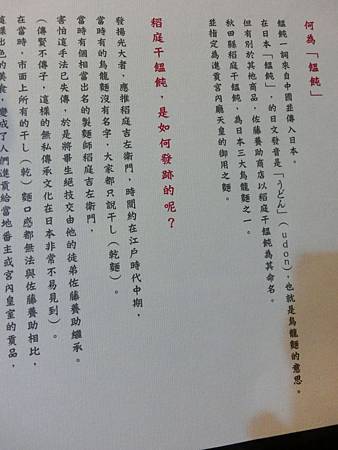 何為「饂飩」
饂飩一詞來自中國並傳入日本。
在日本「饂飩」，的日文發音是「うどん」（udon），也就是烏龍麵的意思。
但有別於其他商品，佐藤養助商店以稻庭干饂飩為其命名。
秋田縣稻庭干饂飩，為日本三大烏龍麵之一。
並指定為進貢宮內廳天皇的御用之麵。
稻庭干饂飩，是如何發跡的呢？
發揚光大者，應推稻庭吉左衛門，時間約在江戶時代中期，
當時有的烏龍麵沒有名字，大家都只說干し（乾麵）。
當時有個相當出名的製麵師稻庭吉左衛門，
害怕這手法已失傳，於是將畢生絕技交由他的徒弟佐藤養助繼承。
（傳賢不傳子，這樣的無私傳承文化在日本非常不易見到）。
在當時，市面上所有的干し（乾）麵口感都無法與佐藤養助相比，
這樣出色的美食，變成了人們進貢給當地番主或宮內皇室的貢品，